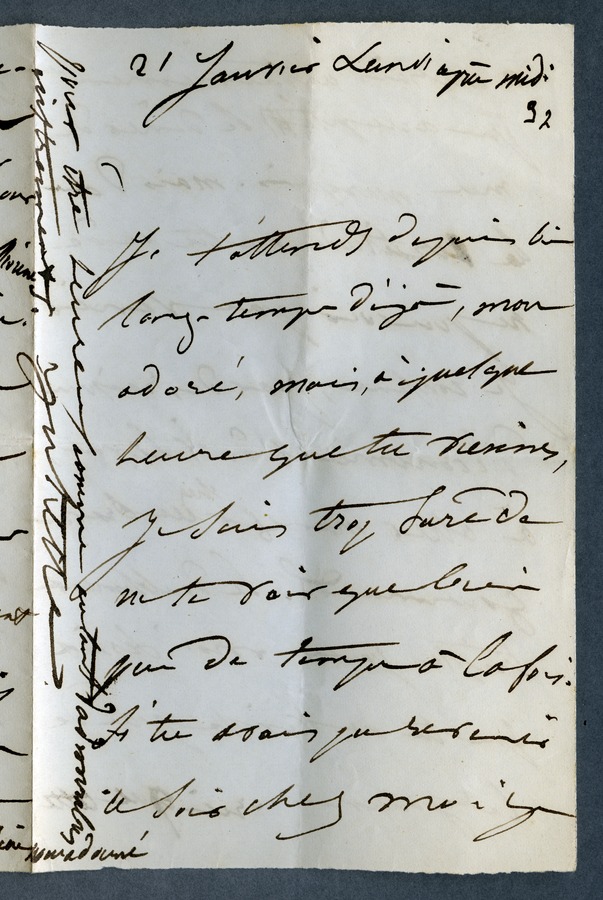 21 Janvier Lundi après midi
Je t'attends depuis bien
long-temps déjà, mon
adoré, mais, à quelque
heure que tu viennes,
je suis trop sûre de
ne te voir que bien
peu de temps à la fois.
Si tu avais pu revenir
le soir chez moi j'
pour être heureux comme autant
Juliette
mon adoré